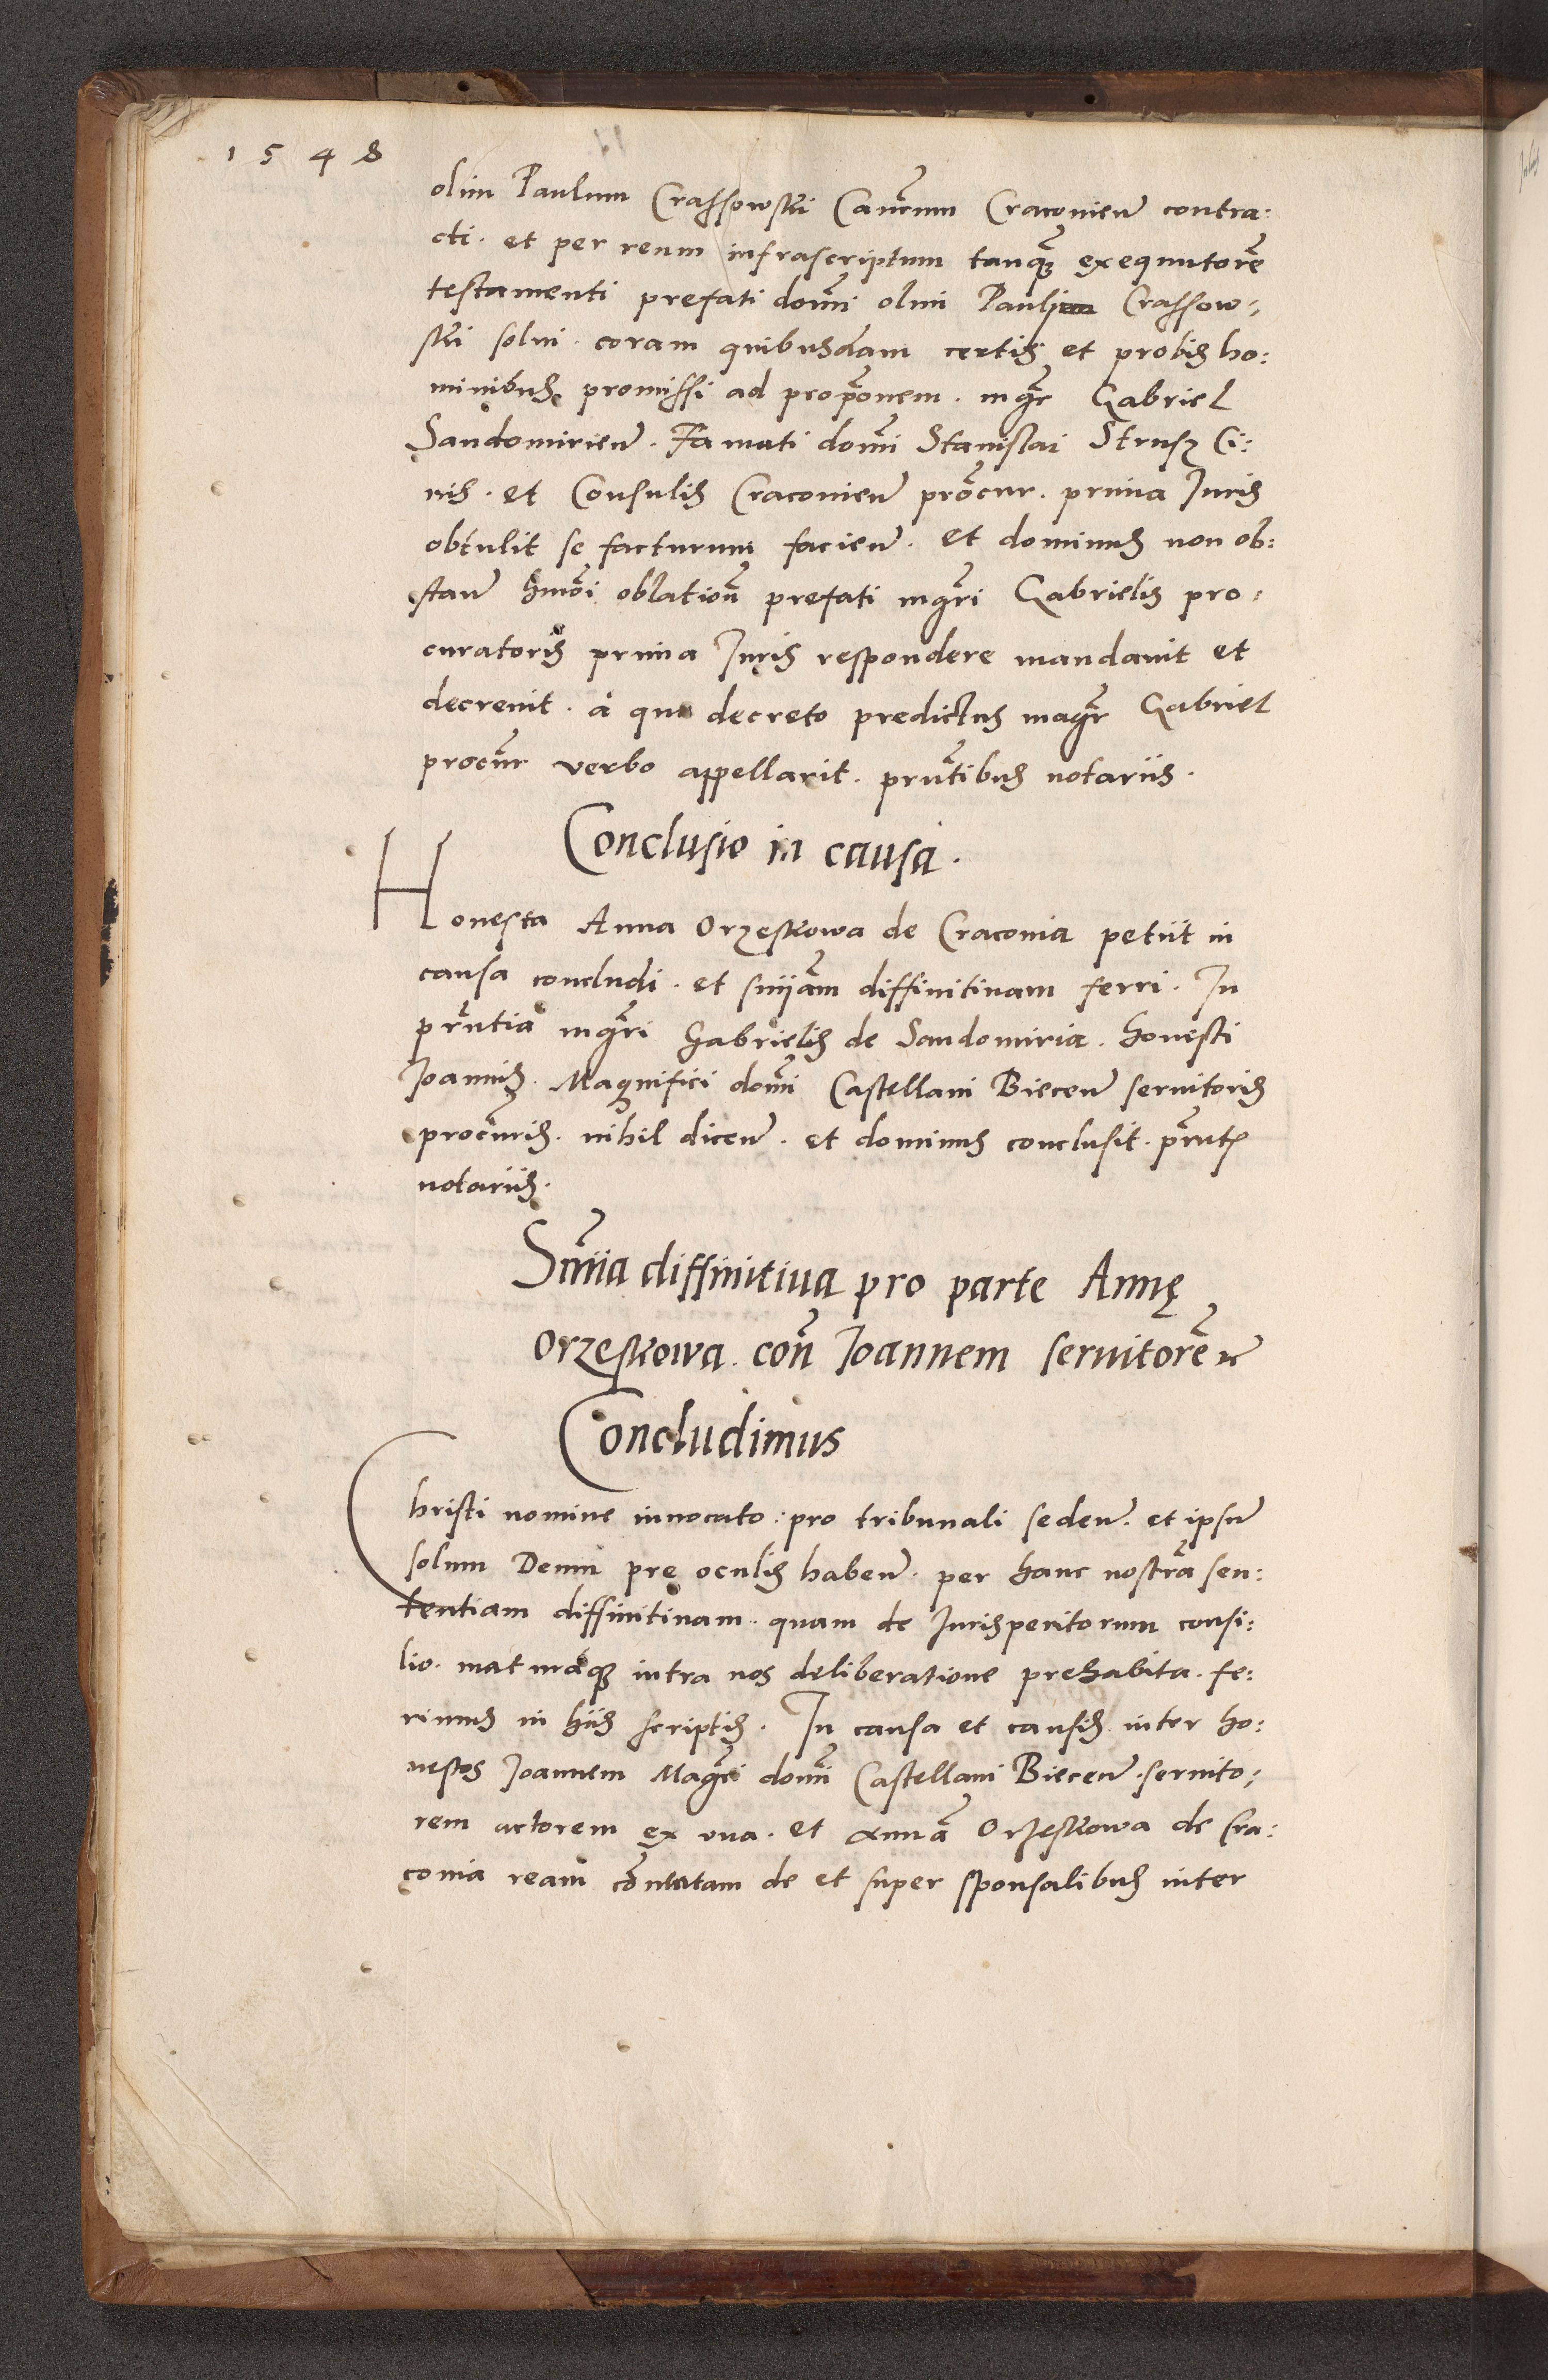 1548
olim Paulum Crassowski Canrum Cracovien contra:
cti. et per reum infrascriptum tanq exequutore
testamenti prefati domi olim Pauli Crassow:
ski solui. coram quibusdam certis et probis ho:
minibus promissi ad proponem. mgr Gabriel
Sandomirien. Famati domi Stanislai Strusz Ci:
uis. et Consulis Cracouien procur. prima Iuris
obtulit se facturum facien. et dominus non ob:
stan hmoi oblation prefati mgri Gabrielis pro:
curatoris prima Iuris respondere mandauit et
decreuit. à quo decreto predictus magr Gabriel
procur verbo appellauit. pruntibus notariis.
Conclusio in causa.
Honesta Anna Orzeskowa de Cracouia petiit in
causa concludi. et sniam diffinitiuam ferri. In
pruntia mgri Gabrielis de Sandomiria. honesti
Ioannis. Magnifici domi Castellani Biecen seruitoris
procuris. nihil dicen. et dominus conclusit. prnt
notariis.
Snia diffinitiua pro parte Annę
Orzeskowa. con Ioannem seruitore
Concludimus
Christi nomine inuocato: pro tribunali seden. et ipsum
solum Deum pre oculis haben. per hanc nostra sen:
tentiam diffinitiuam. quam de Iurisperitorum consi:
lio. maturaq intra nos deliberatione prehabita. fe:
rimus in hiis scriptis. In causa et causis inter ho:
nestos Ioannem Magci domi Castellani Biecen. seruito:
rem actorem ex vna. et Anna Orzeskowa de Cra:
couia ream conuentam de et super sponsalibus inter